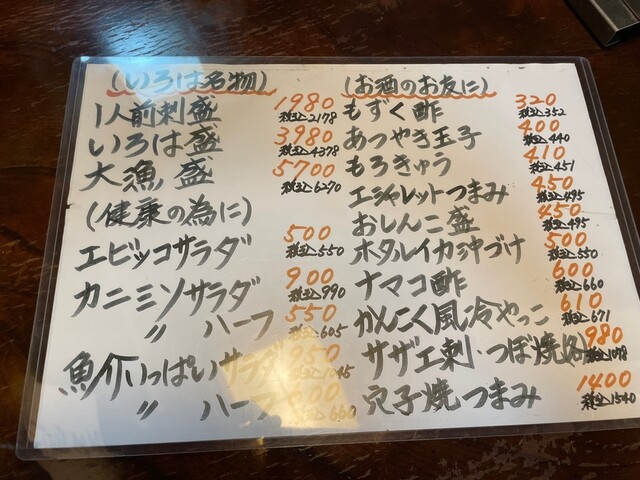 (いろは名物)
1人前刺盛 1980 税込2178
いろは盛 3980 税込4378
大漁盛 5700 税込6270
(健康の為に)
エビッコサラダ 500 税込550
カニミソサラダ 900 税込990
〃 ハーフ 550 税込605
魚介いっぱいサラダ 950 税込1045
〃 ハーフ 600 税込660
(お酒のお友に)
もずく酢 320 税込352
あつやき玉子 400 税込440
もろきゅう 410 税込451
エシャレットつまみ 450 税込495
おしんこ盛 450 税込495
ホタルイカ沖づけ 500 税込550
ナマコ酢 600 税込660
かんこく風冷やっこ 610 税込671
サザエ刺・つぼ焼 980 税込1078
穴子焼つまみ 1400 税込1540